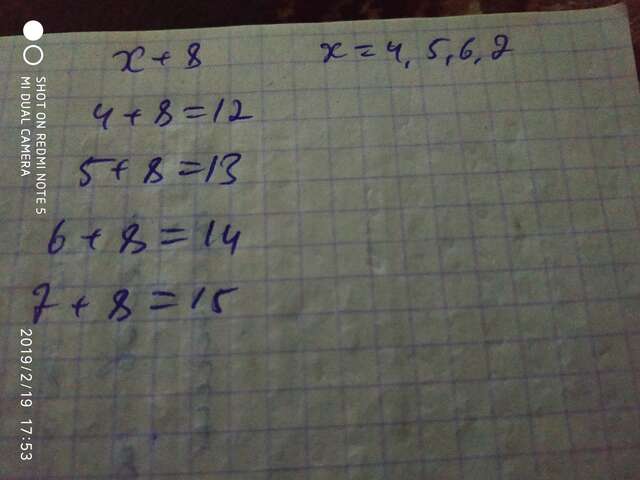 x + 8 x = 4, 5, 6, 7
4 + 8 = 12
5 + 8 = 13
6 + 8 = 14
7 + 8 = 15
SHOT ON REDMI NOTE 5
MI DUAL CAMERA
2019/2/19 17:53